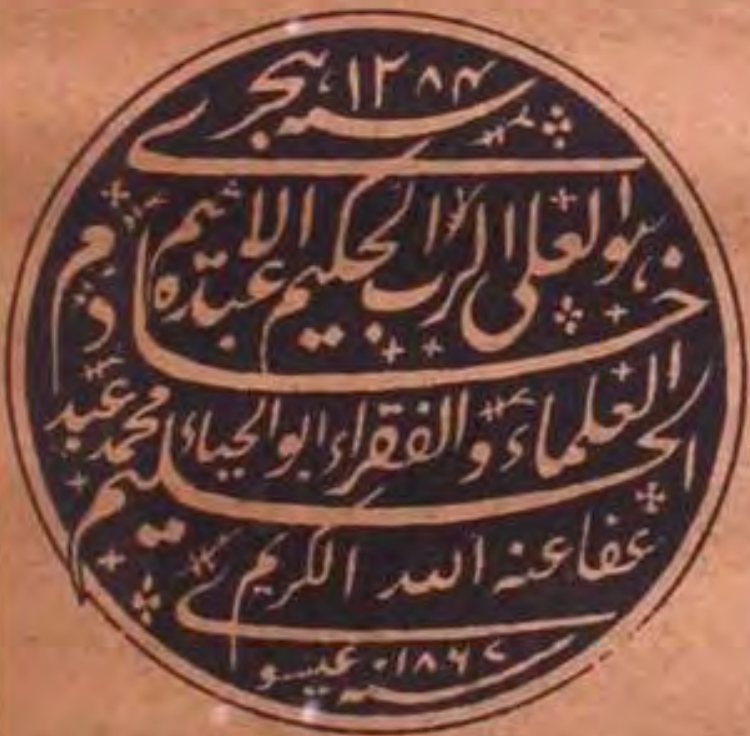 سنہ ۱۲۸۴ ہجری
ہو العلی الرب الحکیم عبدہ الاثیم
خادم
العلماء والفقراء ابو الحیاء محمد عبد
الحلیم
عفا عنہ اللہ الکریم
سنہ ۱۸۶۷ عیسوی